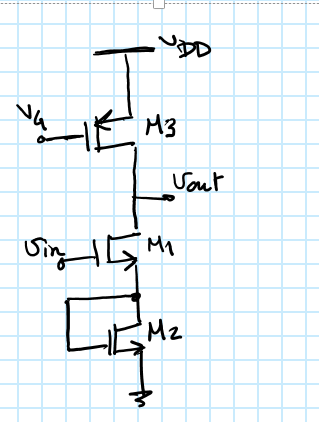 VDD
VG
M3
Vout
Vin
M1
M2